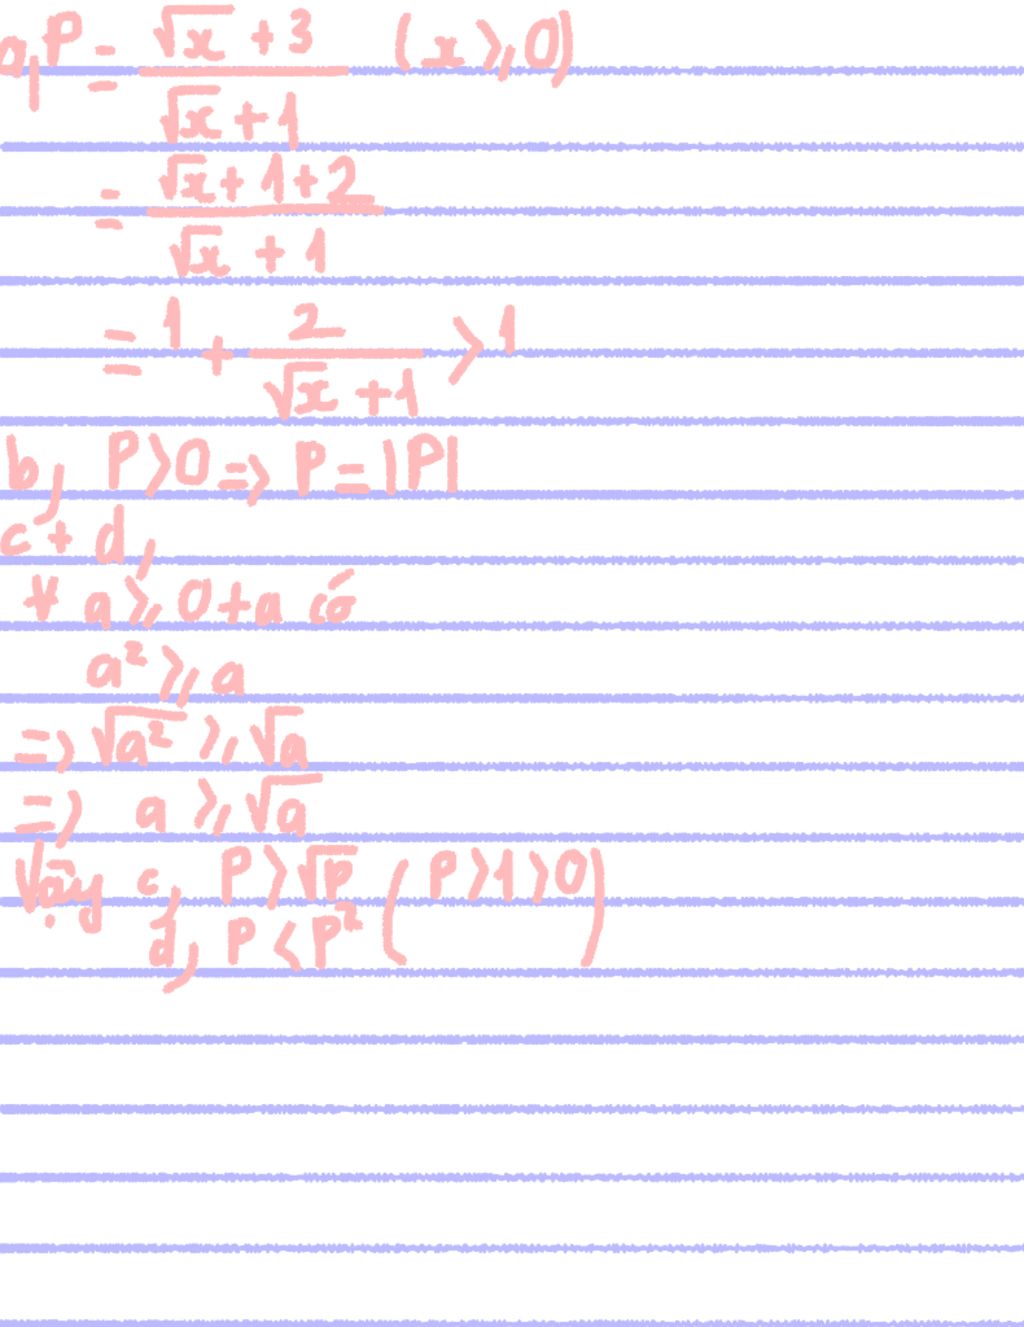 a, P = (√x + 3)/(√x + 1) (x ⩾ 0)
= (√x + 1 + 2)/(√x + 1)
= 1 + 2/(√x + 1) > 1
b, P > 0 => P = |P|
c + d,
∀ a ⩾ 0 ta có
a² ⩾ a
=> √a² ⩾ √a
=> a ⩾ √a
Vậy c, P > √P (P > 1 > 0)
d, P < P²